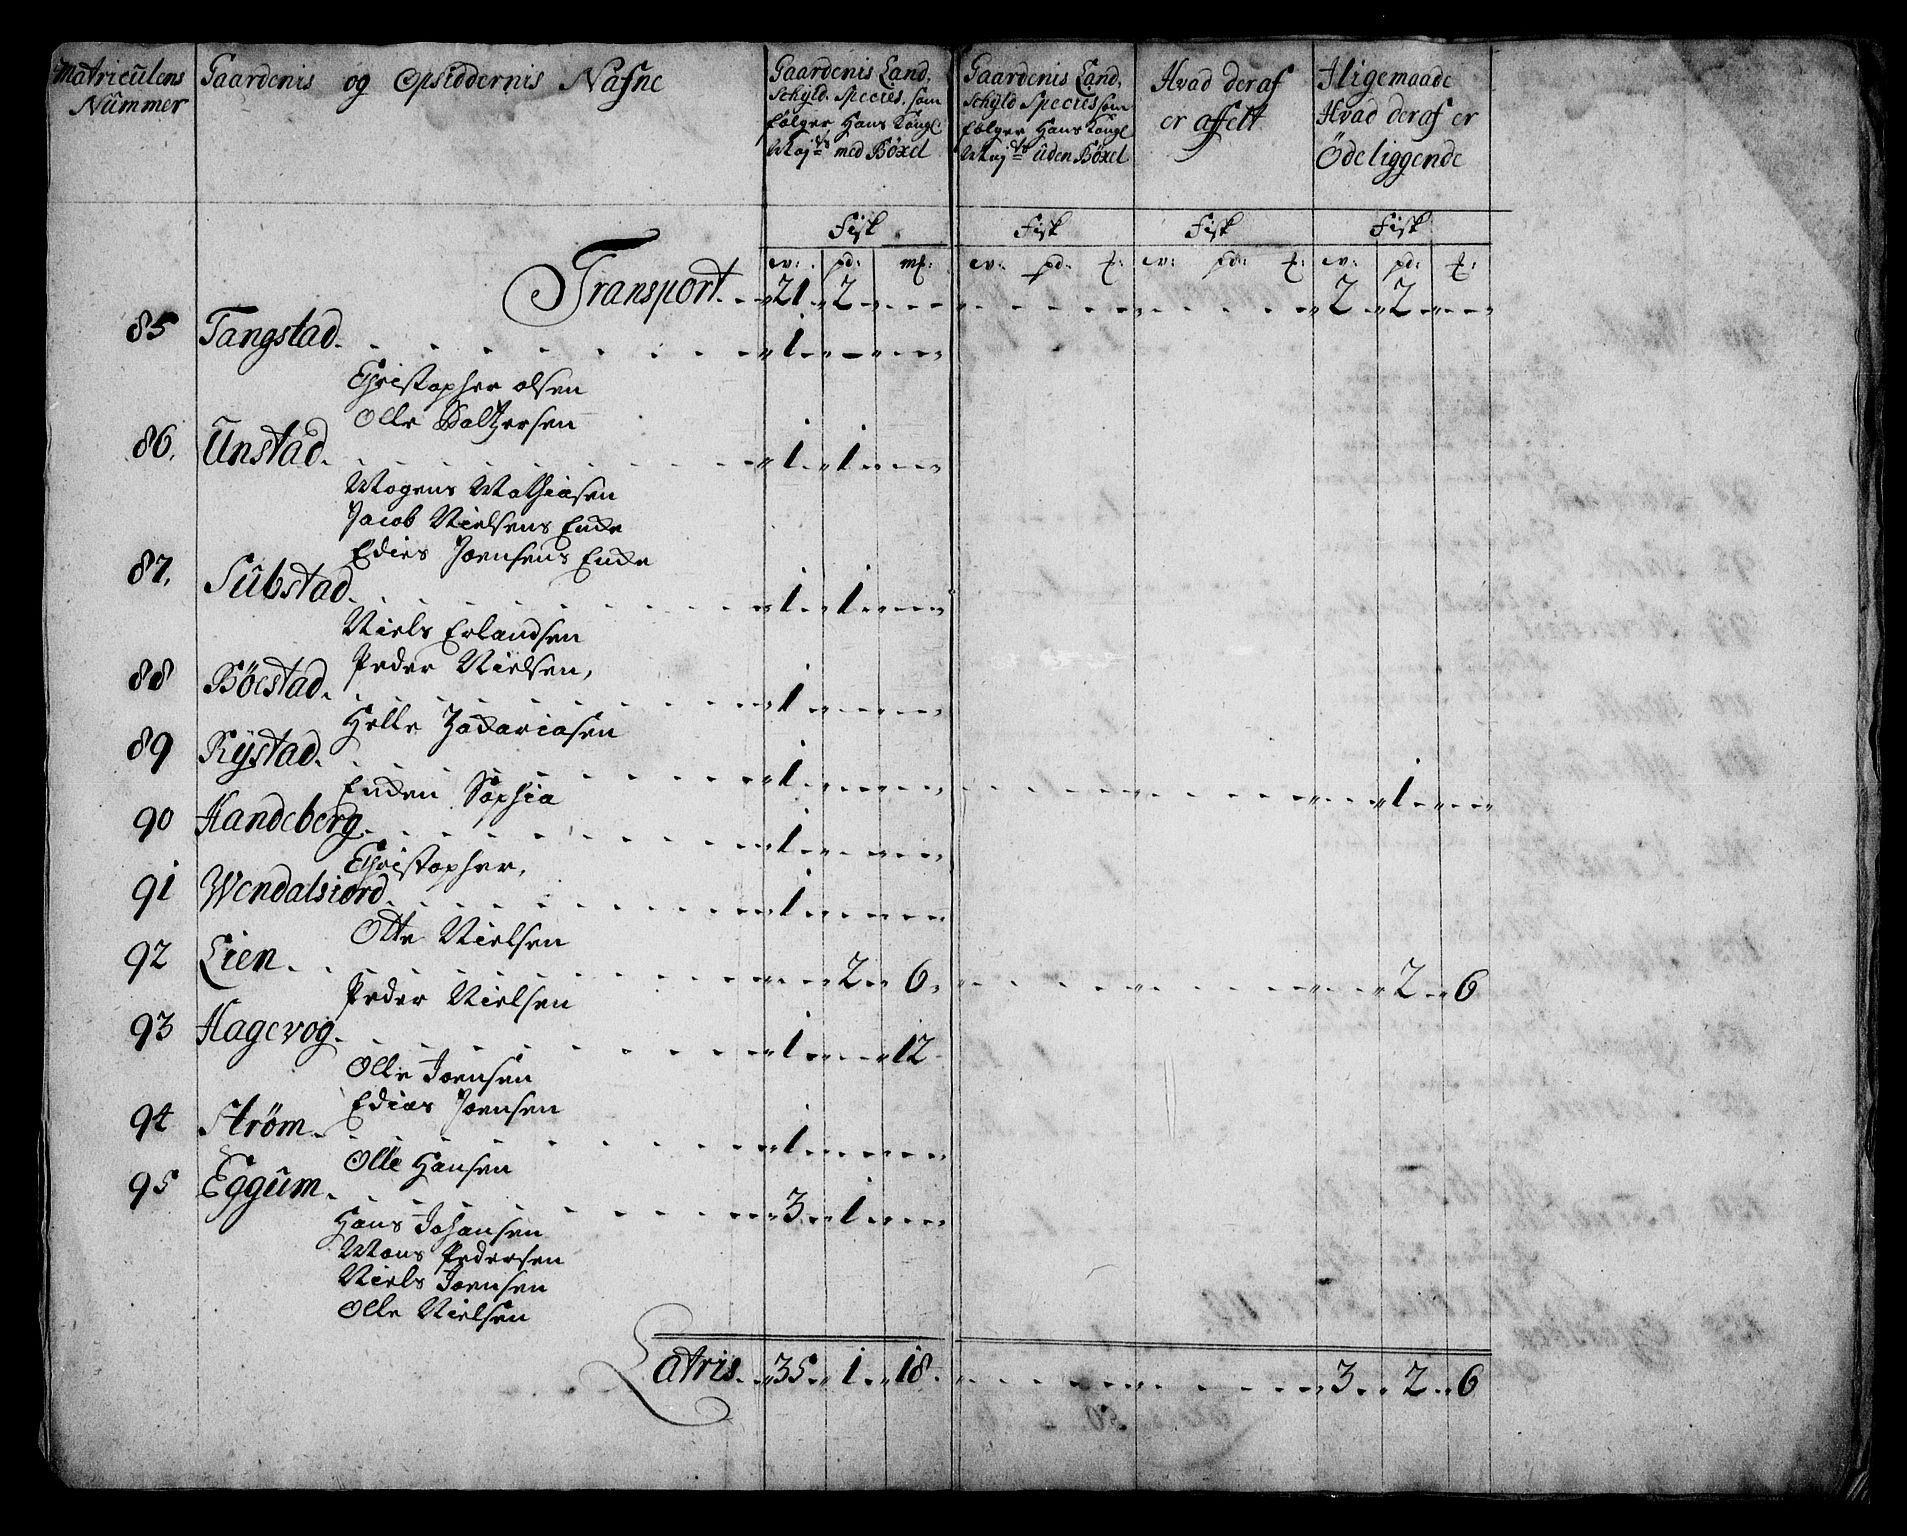 Matriculens Nummer
Gaardenis og Opsiddernis Nafne
Gaardenis Land, Schÿld. Species. som følger Hans Kongl. Maj:ts med Böxel
Gaardenis Land, Schÿld Species som følger Hans Kongl Maj:ts uden Böxel
Hvad deraf er affelt
Iligemaade Hvad deraf er Ödeliggende
Fisk Fisk Fisk Fisk
w: pd: mk: w: pd: w: pd: w: pd:
Transport 21 2 2 2
85 Tangstad 1
Christopher olsen
Olle Baltzersen
86. Unstad 1 1
Mogens Mathiasen
Jacob Nielsens Encke
Edies Joensens Encke
87. Substad 1 1
Niels Erlandsen
Peder Nielsen,
88 Böestad 1
Helle Zacariasen
89 Rÿstad 1 1
Encken Sophia
90 Handeberg 1
Christopher,
91 Wendalsiord 1
Otte Nielsen
92 Lien 2 6 2 6
Peder Nielsen
93 Hagevog 1 12
Olle Joensen
Edias Joensen
94 Strøm 1
Olle Hansen
95 Eggum 3 1
Hans Johansen
Mons Pedersen
Niels Joensen
Olle Nielsen
Latris 35 1 18 3 2 6